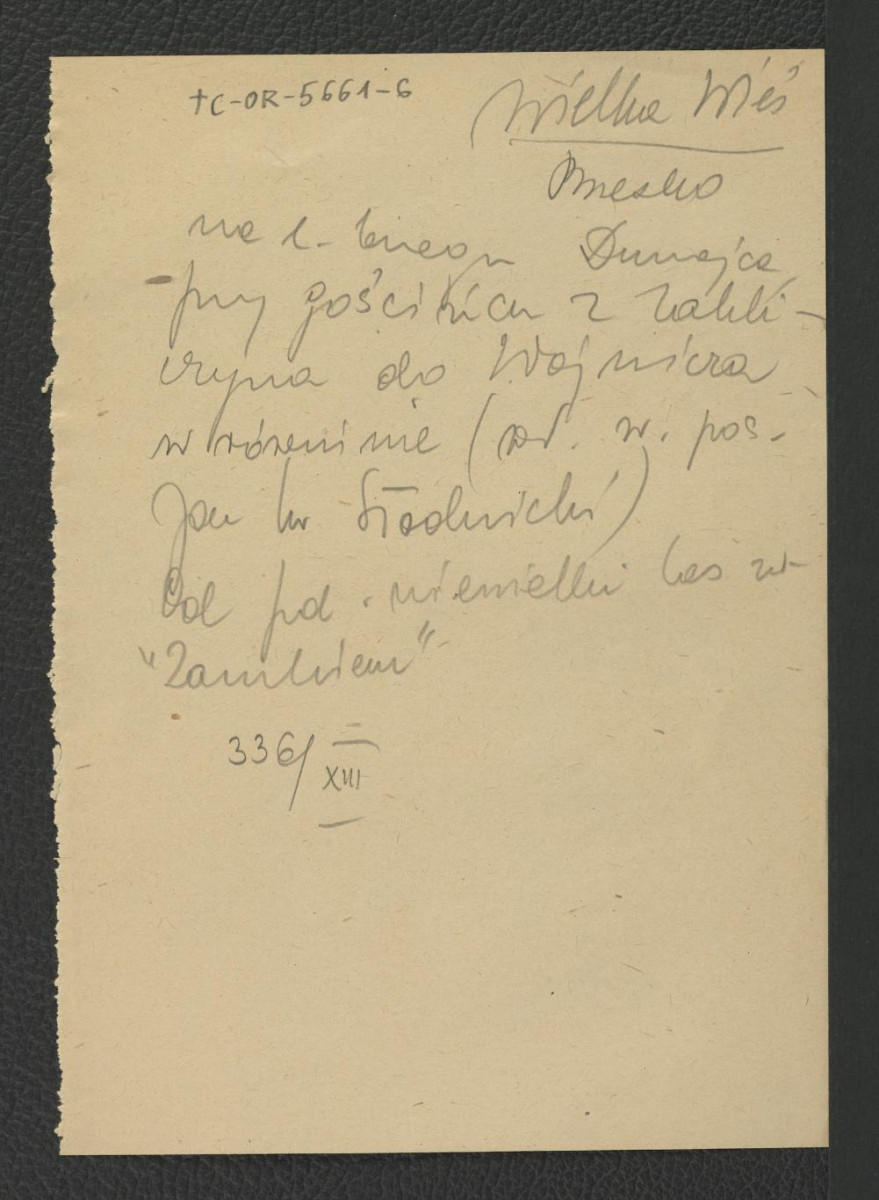 TC-OR-5661-6
Wielka Wieś
Brzesko
na l. brzegu Dunajca
przy gościńcu z Zakli-
czyna do Wojnicza
w równinie (wł. w. pos.
Jan hr Stadnicki)
Od pd. niewielki las zw.
"Zamkiem"
336/XIII